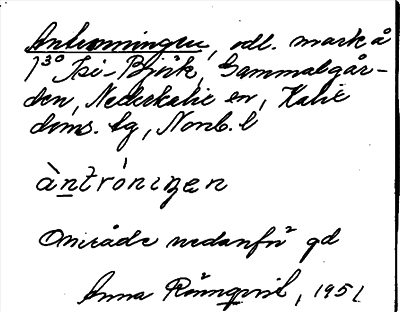 Antronningen, odl. mark å
1³⁰ Isi-Björk, Gammalgår-
den, Nederkalix en, Kalix
doms. lg, Norrb. l
àntròningen
Område nedanför gd
Anna Rönnqvist, 1951